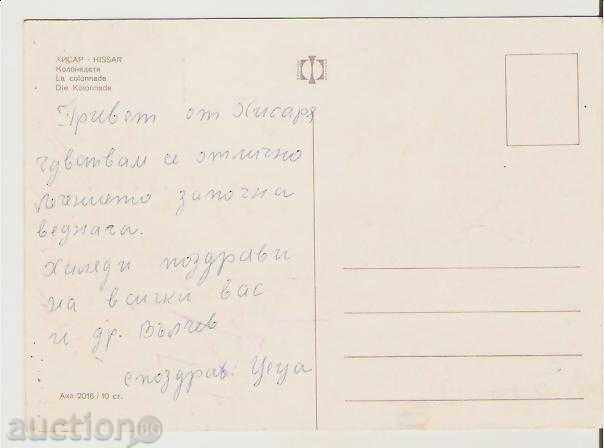 ХИСАР - HISSAR
Колонадата
La colonnade
Die Kolonnade
Привет от Хисаря
чувствам се отлично
Лечението започна
веднага.
Хиляди поздрави
на всички вас
и др. Вълчев
с поздрав: Цеца
Акл 2016 / 10 ст.
auction BG